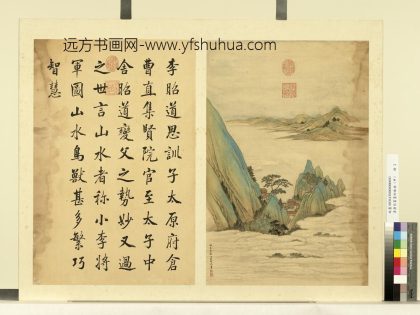 远方书画网-www.yfshuhua.com
李昭道思訓子太原府倉
曹直集賢院官至太子中
舍昭道變父之勢妙又過
之世言山水者称小李將
軍圖山水鳥獸甚多繁巧
智慧